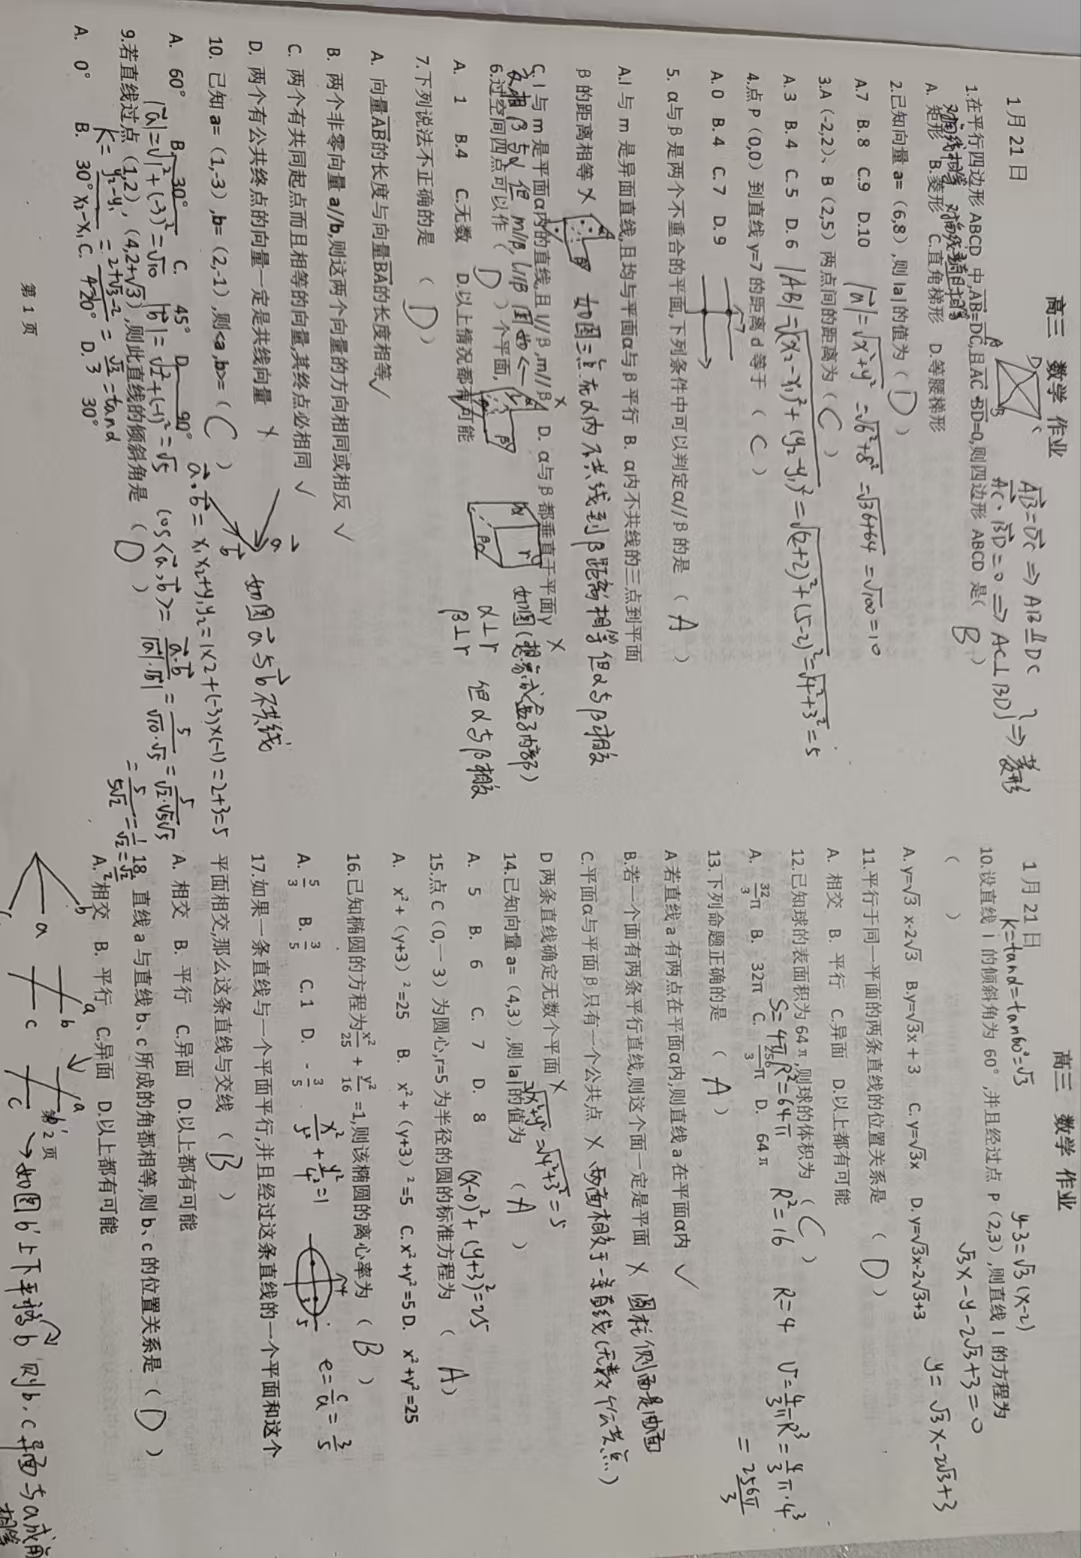 高三 数学 作业
1月21日
1.在平行四边形ABCD中,AB=DC,且AC·BD=0,则四边形ABCD是( B )
AB=DC ⇒ AB∥DC
AC·BD=0 ⇒ AC⊥BD
⇒ 菱形
A. 矩形 B.菱形 C.直角梯形 D.等腰梯形
2.已知向量a=(6,8),则|a|的值为( D )
A.7 B.8 C.9 D.10
|a|=√x²+y²=√6²+8²=√36+64=√100=10
3.A(-2,2)、B(2,5)两点间的距离为( C )
A.3 B.4 C.5 D.6
|AB|=√(x₂-x₁)²+(y₂-y₁)²=√(2+2)²+(5-2)²=√4²+3²=5
4.点P(0,0)到直线y=7的距离d等于( C )
A.0 B.4 C.7 D.9
5. α与β是两个不重合的平面,下列条件中可以判定α//β的是( A )
A.l与m是异面直线,且均与平面α与β平行 B. α内不共线的三点到平面
β的距离相等 × 如图三点在α内不共线到β距离相等但α与β相交
C. l与m是平面α内的直线,且l//β,m//β × D. α与β都垂直于平面γ ×
α⊥γ
β⊥γ 但α与β相交
6.过空间四点可以作( D )个平面,
A. 1 B.4 C.无数 D.以上情况都有可能
7.下列说法不正确的是( D )
A. 向量AB的长度与向量BA的长度相等 √
B. 两个非零向量a//b,则这两个向量的方向相同或相反 √
C. 两个有共同起点而且相等的向量,其终点必相同 √
D. 两个有公共终点的向量一定是共线向量 × 如图a与b不共线
10. 已知a=(1,-3),b=(2,-1),则<a,b>=( C )
a·b=x₁x₂+y₁y₂=1×2+(-3)×(-1)=2+3=5
A. 60° B. 30° C. 45° D. 90°
|a|=√1²+(-3)²=√10 |b|=√2²+(-1)²=√5 cos<a,b>=a·b/|a|·|b|=5/√10·√5=5/√2·√5√5
=5/5√2=1/√2=√2/2
9.若直线过点(1,2),(4,2+√3),则此直线的倾斜角是( D )
k=y₂-y₁/x₂-x₁=2+√3-2/4-1=√3/3=tanα
A. 0° B. 30° C. 120° D. 30°
第1页
高三 数学 作业
1月21日
k=tanα=tan60°=√3
y-3=√3(x-2)
√3x-y-2√3+3=0
y=√3x-2√3+3
10.设直线l的倾斜角为60°,并且经过点P(2,3),则直线l的方程为
( )
A.y=√3 x2√3 B.y=√3x+3 C.y=√3x D.y=√3x-2√3+3
11.平行于同一平面的两条直线的位置关系是( D )
A. 相交 B. 平行 C.异面 D.以上都有可能
12.已知球的表面积为64π,则球的体积为( C )
A. 32/3π B. 32π C. 256/3π D. 64π
S=4πR²=64π R²=16 R=4 V=4/3πR³=4/3π·4³
=256π/3
13.下列命题正确的是( A )
A若直线a有两点在平面α内,则直线a在平面α内 √
B.若一个面有两条平行直线,则这个面一定是平面 × 圆柱侧面是曲面
C.平面α与平面β只有一个公共点 × 两面相交于一条直线(无数个公共点)
D两条直线确定无数个平面 ×
14.已知向量a=(4,3),则|a|的值为( A )
√x²+y²=√4²+3²=5
A. 5 B. 6 C. 7 D. 8
15.点C(0,一3)为圆心,r=5为半径的圆的标准方程为( A )
(x-0)²+(y+3)²=25
A. x²+(y+3)²=25 B. x²+(y+3)²=5 C.x²+y²=5 D. x²+y²=25
16.已知椭圆的方程为x²/25+y²/16=1,则该椭圆的离心率为( B )
A. 5/3 B. 3/5 C.1 D. -3/5
e=c/a=3/5
17.如果一条直线与一个平面平行,并且经过这条直线的一个平面和这个
平面相交,那么这条直线与交线( B )
A. 相交 B. 平行 C.异面 D.以上都有可能
18. 直线a与直线b、c所成的角都相等,则b、c的位置关系是( D )
A. 相交 B. 平行 C.异面 D.以上都有可能
第2页
如图b'上下平移b 则b、c异面与a成角相等